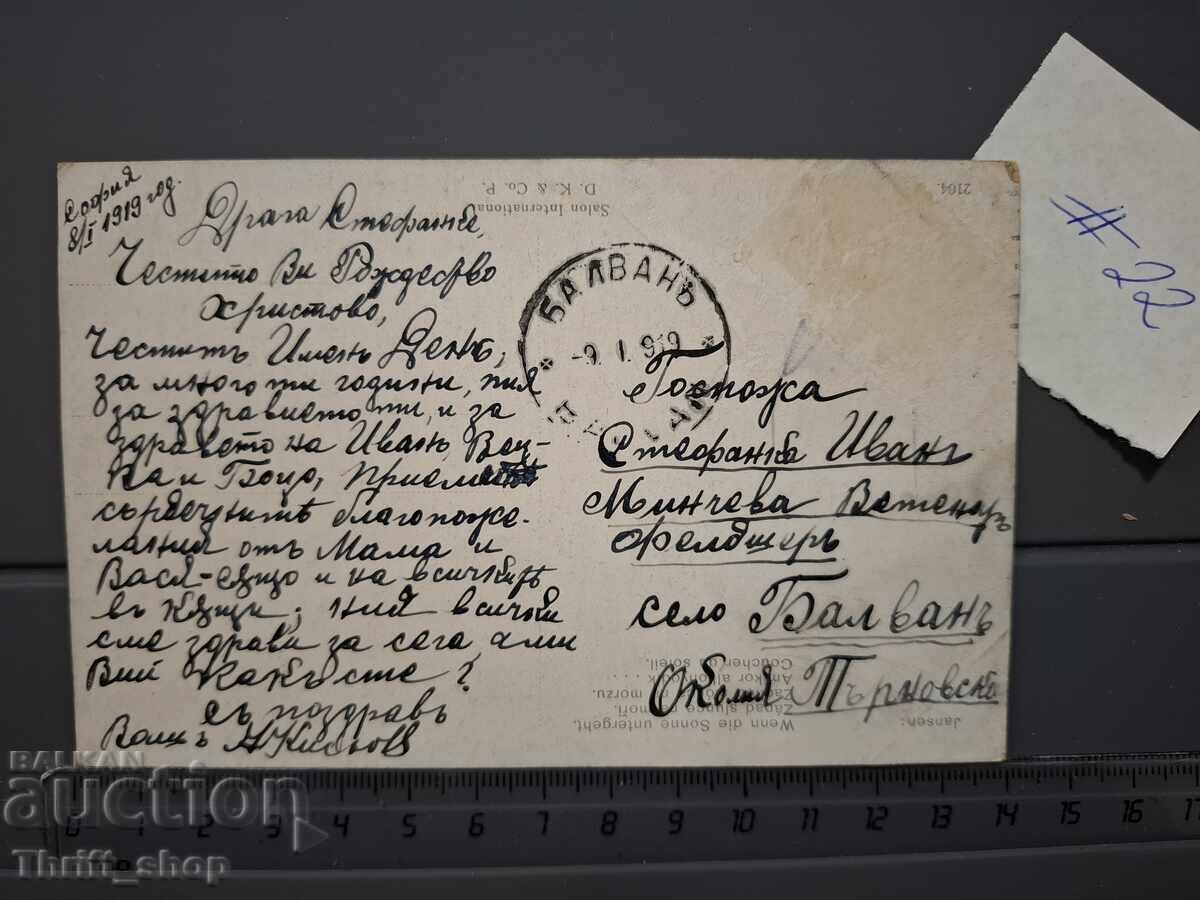 София
8/I 1919 год.
Драга Стефанке,
Честито Ви Рождество
Христово,
Честитъ Именъ День,
за много ти години, пия
за здравието ти, и за
здравето на Иванъ,
и Боцо, Приемете
сърдечнитѣ благопоже-
лания отъ Мама и
и на всичкитѣ
въ кѫщи; ний всички
сме здрави за сега, ами
Вий какъ сте?
съ поздравъ
Вашъ
Salon International
D. K. & Co. P.
2164.
БАЛВАНЪ
-9.I.919
Госпожа
Стефанка Иванъ
Минчева Ветенаръ
Фелдшеръ
село Балванъ
Околия Търновска
Jansen:
Wenn die Sonne untergeht.
Západ slunce na moři.
Zachód n morzu.
Amikor alkonyodik . . . .
Coucher du soleil.
# 22
BALKAN
auction
Thrift_shop
0 1 2 3 4 5 6 7 8 9 10 11 12 13 14 15 16 17